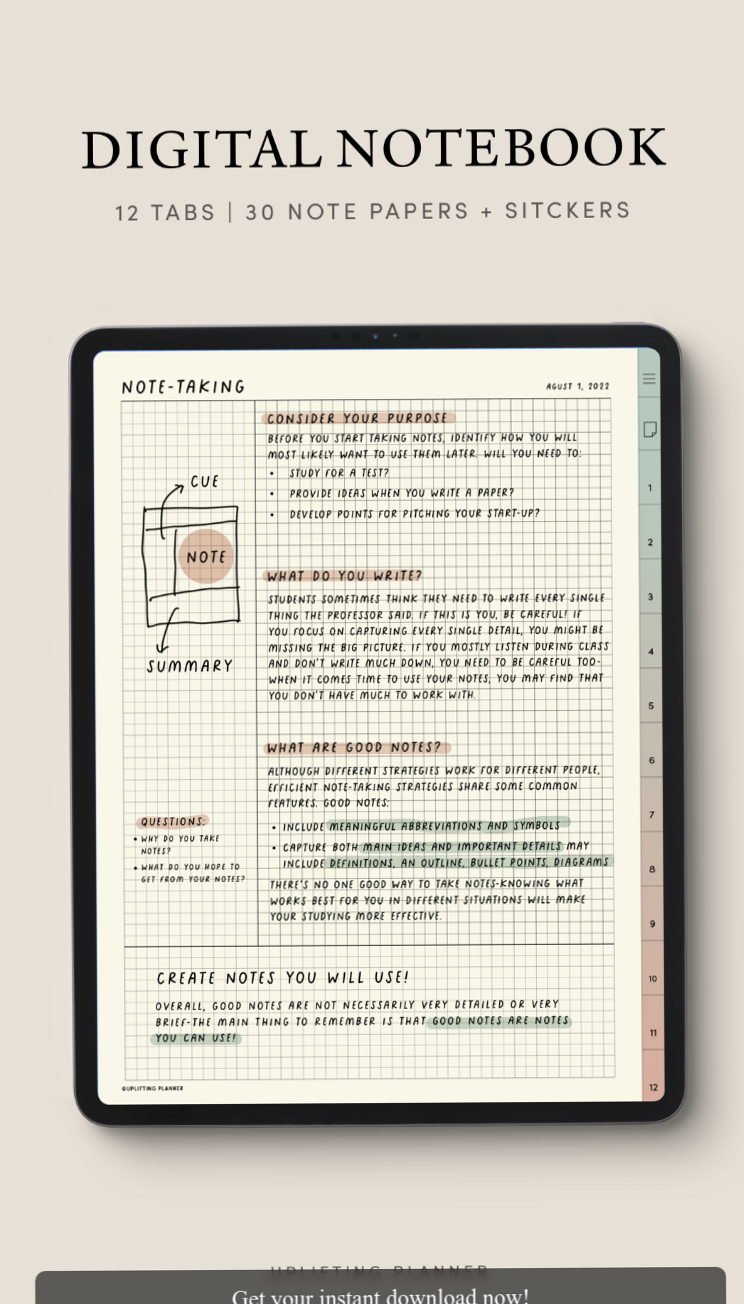 DIGITAL NOTEBOOK
12 TABS | 30 NOTE PAPERS + SITCKERS
NOTE-TAKING
AGUST 1, 2022
CUE
NOTE
SUMMARY
QUESTIONS:
• WHY DO YOU TAKE
NOTES?
• WHAT DO YOU HOPE TO
GET FROM YOUR NOTES?
CONSIDER YOUR PURPOSE
BEFORE YOU START TAKING NOTES, IDENTIFY HOW YOU WILL
MOST LIKELY WANT TO USE THEM LATER. WILL YOU NEED TO:
• STUDY FOR A TEST?
• PROVIDE IDEAS WHEN YOU WRITE A PAPER?
• DEVELOP POINTS FOR PITCHING YOUR START-UP?
WHAT DO YOU WRITE?
STUDENTS SOMETIMES THINK THEY NEED TO WRITE EVERY SINGLE
THING THE PROFESSOR SAID. IF THIS IS YOU, BE CAREFUL! IF
YOU FOCUS ON CAPTURING EVERY SINGLE DETAIL, YOU MIGHT BE
MISSING THE BIG PICTURE. IF YOU MOSTLY LISTEN DURING CLASS
AND DON'T WRITE MUCH DOWN, YOU NEED TO BE CAREFUL TOO-
WHEN IT COMES TIME TO USE YOUR NOTES, YOU MAY FIND THAT
YOU DON'T HAVE MUCH TO WORK WITH.
WHAT ARE GOOD NOTES?
ALTHOUGH DIFFERENT STRATEGIES WORK FOR DIFFERENT PEOPLE,
EFFICIENT NOTE-TAKING STRATEGIES SHARE SOME COMMON
FEATURES. GOOD NOTES:
• INCLUDE MEANINGFUL ABBREVIATIONS AND SYMBOLS
• CAPTURE BOTH MAIN IDEAS AND IMPORTANT DETAILS MAY
INCLUDE DEFINITIONS, AN OUTLINE, BULLET POINTS, DIAGRAMS
THERE'S NO ONE GOOD WAY TO TAKE NOTES-KNOWING WHAT
WORKS BEST FOR YOU IN DIFFERENT SITUATIONS WILL MAKE
YOUR STUDYING MORE EFFECTIVE.
CREATE NOTES YOU WILL USE!
OVERALL, GOOD NOTES ARE NOT NECESSARILY VERY DETAILED OR VERY
BRIEF-THE MAIN THING TO REMEMBER IS THAT GOOD NOTES ARE NOTES
YOU CAN USE!
©UPLIFTING PLANNER
1
2
3
4
5
6
7
8
9
10
11
12
UPLIFTING PLANNER
Get your instant download now!